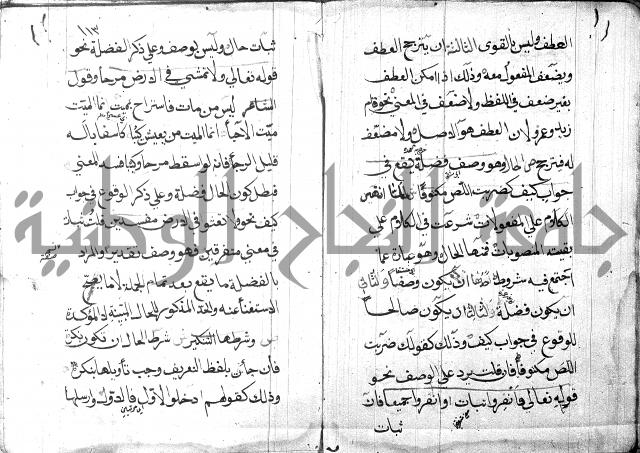 العطف وليس بالقوي الثالثة ان يترجح العطف
ويضعف المفعول معه وذلك اذا امكن العطف
بغير ضعف في اللفظ ولا ضعف في المعنى نحو قام
زيد وعمرو لان العطف هو الاصل ولا مضعف
له فيترجح ص الحال وهو وصف فضلة يقع في
جواب كيف كضربت اللص مكتوفا ش لما انتهى
الكلام على المفعولات شرعت في الكلام على
بقية المنصوبات فمنها الحال وهو عبارة عما
اجتمع فيه شروط احدها ان يكون وصفا والثاني
ان يكون فضلة والثالث ان يكون صالحا
للوقوع في جواب كيف وذلك كقولك ضربت
اللص مكتوفا فان قلت يرد على الوصف نحو
قوله تعالى فانفروا ثبات او انفروا جميعا فان
ثبات
١١٣
ثبات حال وليس بوصف وعلى ذكر الفضلة نحو
قوله تعالى ولا تمشي في الارض مرحا وقول
الشاعر ليس من مات فاستراح بميت انما الميت
ميت الاحياء انما الميت من يعيش كئيبا كاسفا باله
قليل الرجاء فانه لو اسقط مرحا وكئيبا فسد المعنى
فبطل كون الحال فضلة وعلى ذكر الوقوع في جواب
كيف نحو ولا تعثوا في الارض مفسدين قلت ثبات
في معنى متفرقين فهو وصف تقديرا والمراد
بالفضلة ما يقع بعد تمام الجملة لا ما يصح
الاستغناء عنه والحد المذكور للحال المبينة لا المؤكدة
ص وشرطها التنكير ش شرط الحال ان تكون نكرة
فان جائت بلفظ التعريف وجب تأويلها بنكرة
وذلك كقولهم ادخلوا الاول فالاول وارسلها
جامعة النجاح الوطنية